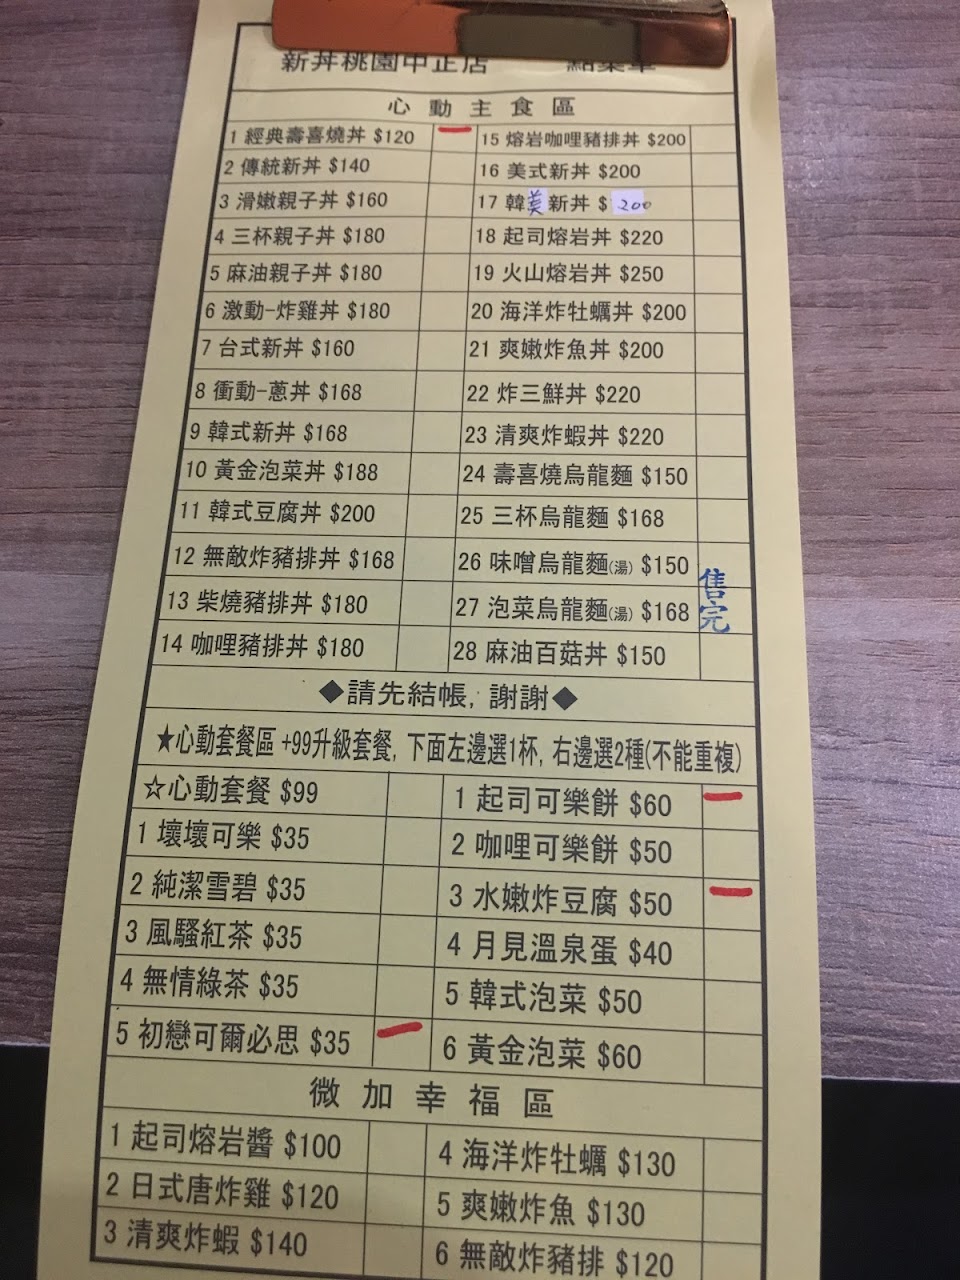 新丼桃園中正店 點菜單
心動主食區
1 經典壽喜燒丼 $120
15 熔岩咖哩豬排丼 $200
2 傳統新丼 $140
16 美式新丼 $200
3 滑嫩親子丼 $160
17 韓美新丼 $200
4 三杯親子丼 $180
18 起司熔岩丼 $220
5 麻油親子丼 $180
19 火山熔岩丼 $250
6 激動-炸雞丼 $180
20 海洋炸牡蠣丼 $200
7 台式新丼 $160
21 爽嫩炸魚丼 $200
8 衝動-蔥丼 $168
22 炸三鮮丼 $220
9 韓式新丼 $168
23 清爽炸蝦丼 $220
10 黃金泡菜丼 $188
24 壽喜燒烏龍麵 $150
11 韓式豆腐丼 $200
25 三杯烏龍麵 $168
12 無敵炸豬排丼 $168
26 味噌烏龍麵(湯) $150
13 柴燒豬排丼 $180
27 泡菜烏龍麵(湯) $168 售完
14 咖哩豬排丼 $180
28 麻油百菇丼 $150
◆請先結帳, 謝謝◆
★心動套餐區 +99升級套餐, 下面左邊選1杯, 右邊選2種(不能重複)
☆心動套餐 $99
1 起司可樂餅 $60
1 壞壞可樂 $35
2 咖哩可樂餅 $50
2 純潔雪碧 $35
3 水嫩炸豆腐 $50
3 風騷紅茶 $35
4 月見溫泉蛋 $40
4 無情綠茶 $35
5 韓式泡菜 $50
5 初戀可爾必思 $35
6 黃金泡菜 $60
微加幸福區
1 起司熔岩醬 $100
4 海洋炸牡蠣 $130
2 日式唐炸雞 $120
5 爽嫩炸魚 $130
3 清爽炸蝦 $140
6 無敵炸豬排 $120